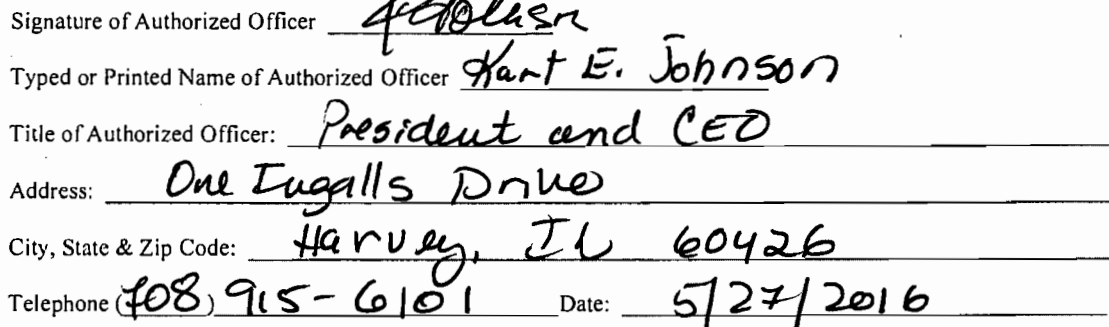 Signature of Authorized Officer
Typed or Printed Name of Authorized Officer Kurt E. Johnson
Title of Authorized Officer: President and CEO
Address: One Ingalls Drive
City, State & Zip Code: Harvey, IL 60426
Telephone (708) 915-6101 Date: 5/27/2016